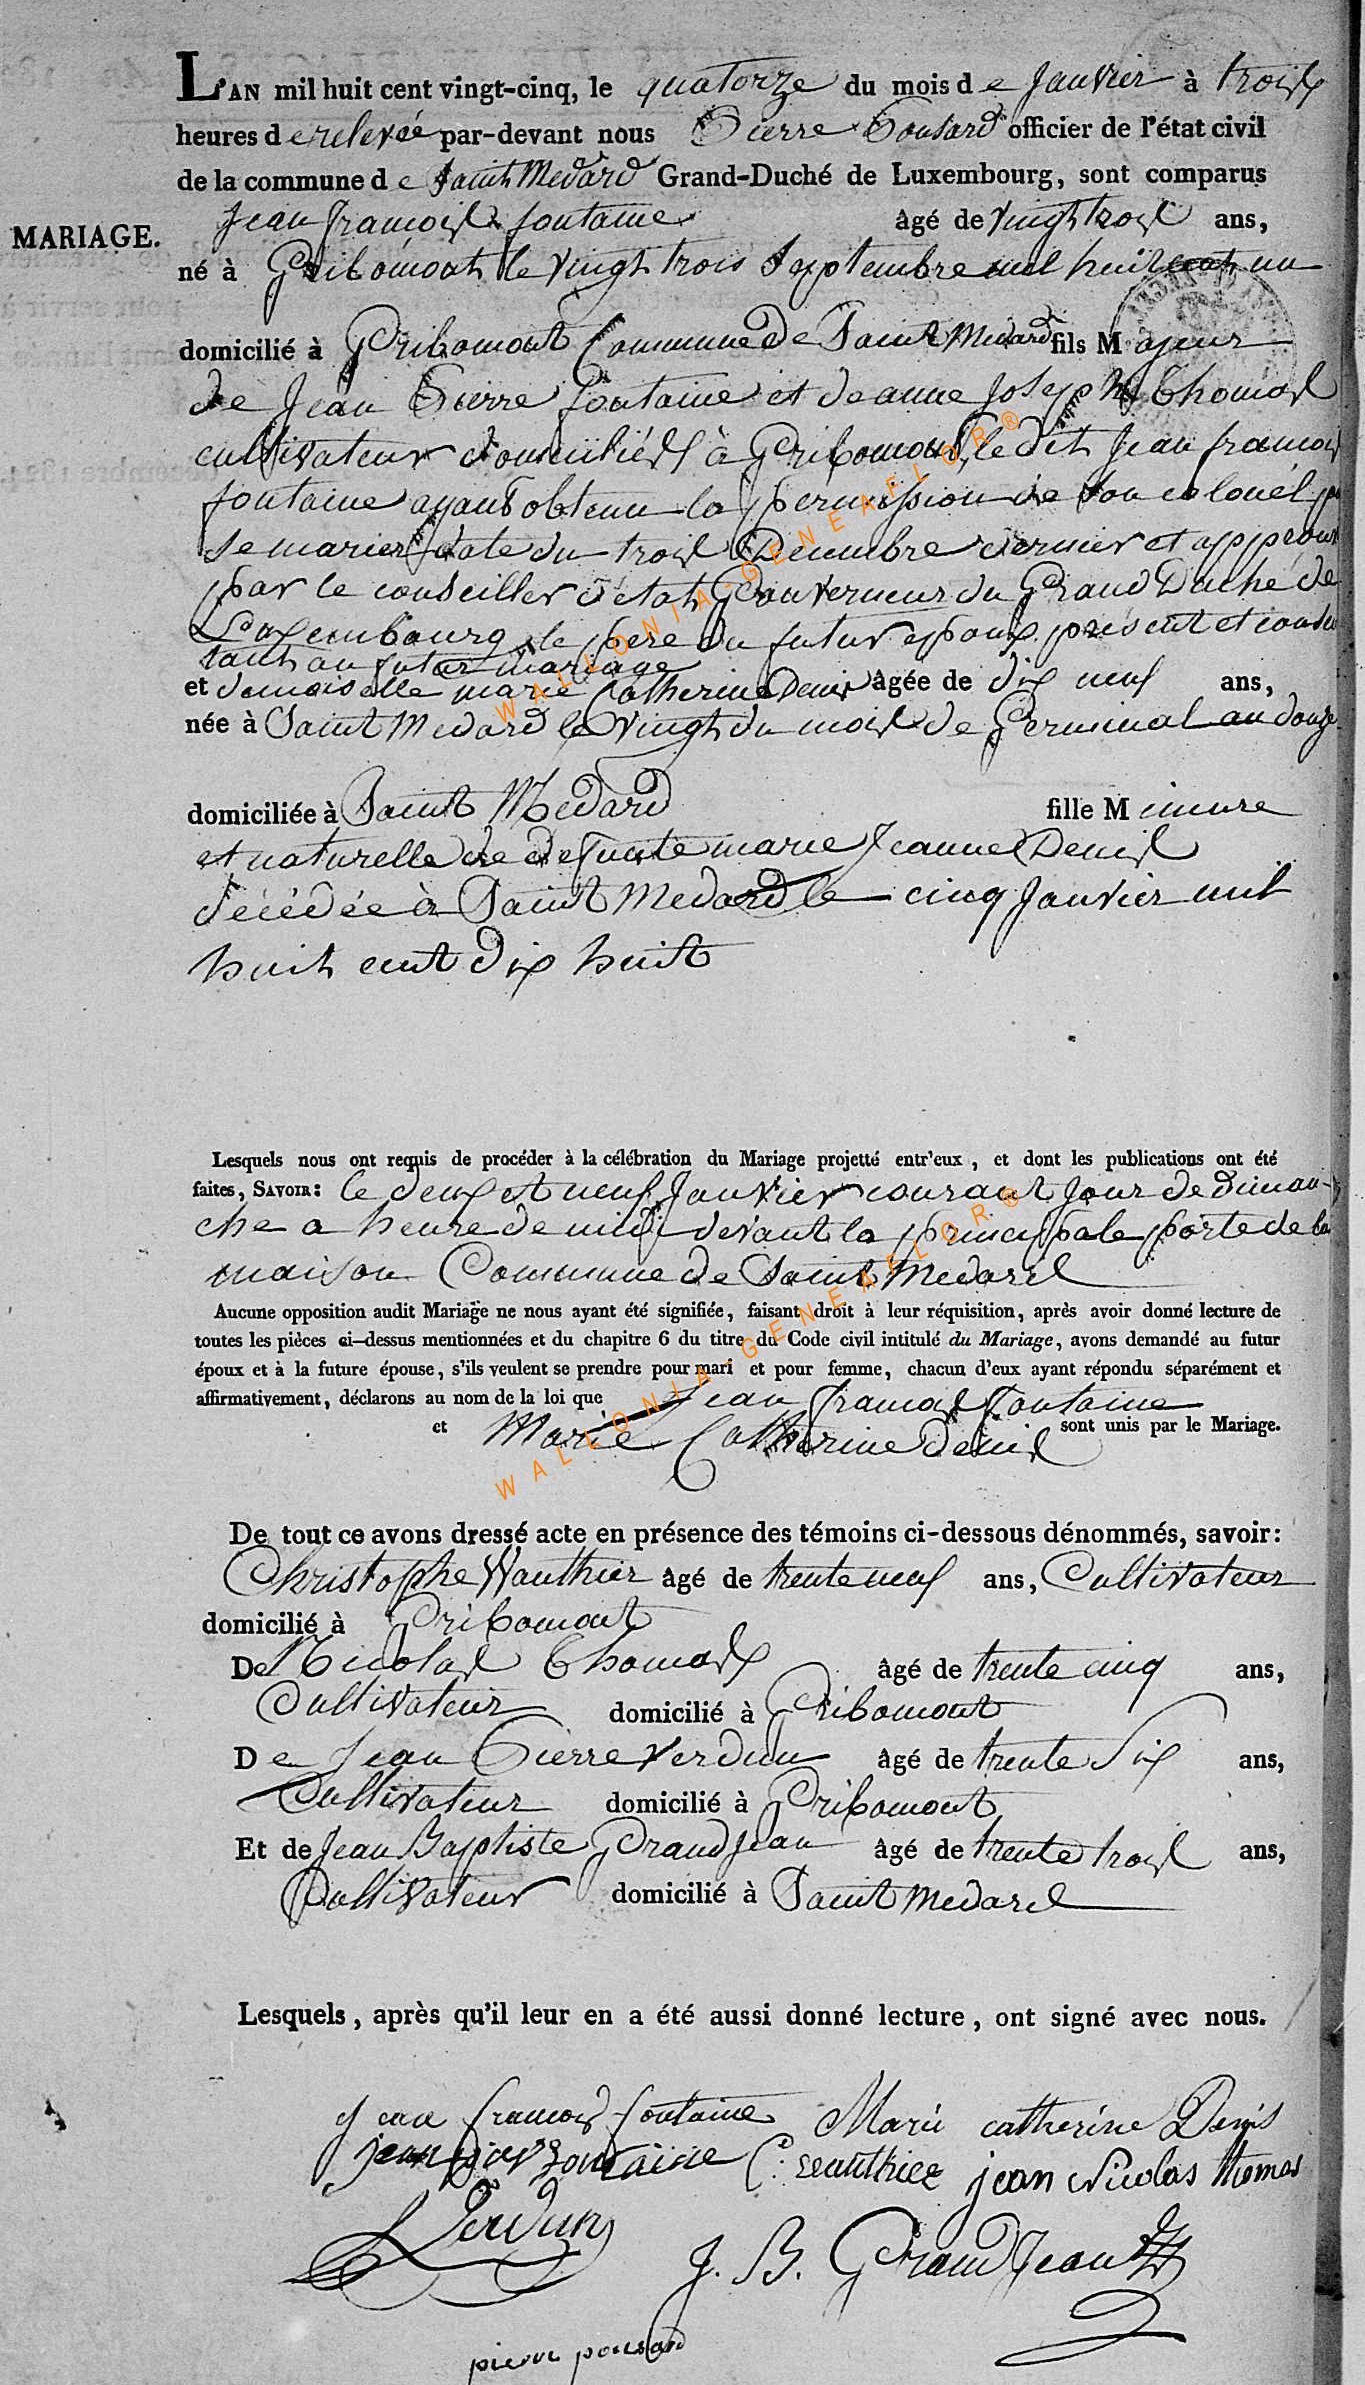 L'AN mil huit cent vingt-cinq, le quatorze du mois de Janvier à trois
heures de relevée par-devant nous Pierre Pousard officier de l'état civil
de la commune de Saint Medard Grand-Duché de Luxembourg, sont comparus
Jean françois fontaine âgé de vingt trois ans,
MARIAGE.
né à Gribomont le vingt trois Septembre mil huit cent un
domicilié à Gribomont Commune de Saint Medard fils Majeur
de Jean Pierre fontaine et de anne Joseph Thomas
cultivateur domiciliés à Gribomont, le dit Jean francois
fontaine ayant obtenu la permission de son colonel pr
se marier date du trois Decembre dernier et approuvé
par le conseiller d'état Gouverneur du Grand Duché de
Luxembourg, le pere du futur epoux présent et consen
tant au futur mariage
et demoiselle marie Catherine Denis âgée de dix neuf ans,
née à Saint Medard le vingt du mois de Germinal an douze
domiciliée à Saint Medard fille Mineure
et naturelle de defunte marie Jeanne Denis
décédée à Saint Medard le cinq Janvier mil
huit cent dix huit
Lesquels nous ont requis de procéder à la célébration du Mariage projetté entr'eux, et dont les publications ont été
faites, SAVOIR: le deux et neuf Janvier courant jour de diman-
che a heure de midi devant la principale porte de la
maison Commune de Saint Medard
Aucune opposition audit Mariage ne nous ayant été signifiée, faisant droit à leur réquisition, après avoir donné lecture de
toutes les pièces ci-dessus mentionnées et du chapitre 6 du titre du Code civil intitulé du Mariage, avons demandé au futur
époux et à la future épouse, s'ils veulent se prendre pour mari et pour femme, chacun d'eux ayant répondu séparément et
affirmativement, déclarons au nom de la loi que Jean francois fontaine
et Marie Catherine denis sont unis par le Mariage.
De tout ce avons dressé acte en présence des témoins ci-dessous dénommés, savoir:
Christophe Wauthier âgé de trente neuf ans, Cultivateur
domicilié à Gribomont
De Nicolas Thomas âgé de trente cinq ans,
Cultivateur domicilié à Gribomont
De Jean Pierre Verdun âgé de trente Six ans,
Cultivateur domicilié à Gribomont
Et de Jean Baptiste Grandjean âgé de trente trois ans,
Cultivateur domicilié à Saint Medard
Lesquels, après qu'il leur en a été aussi donné lecture, ont signé avec nous.
Jean francois fontaine Marie catherine Denis
jean pier fontaine C: wauthiee jean Nicolas thomas
Verdun
J. B. Grand Jean
pierre pousard
WALLONIA-GENEAFLOR®
WALLONIA-GENEAFLOR®